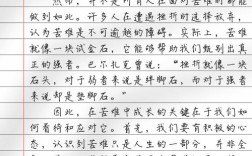 然而，并不是所有人在面对苦难时都能
做到如此。许多人在遭遇挫折时选择放弃，
认为苦难是不可逾越的障碍。实际上，苦难
就像一块试金石，它能够帮助我们甄别出真
正的强者。巴尔扎克曾说：“挫折就像一块
石头，对于弱者来说是绊脚石，而对于强者
来说却是垫脚石。”
因此，在苦难中成长的关键在于我们如
何看待和应对它。首先，我们要有积极的心
态，认识到苦难是人生的一部分，并非总